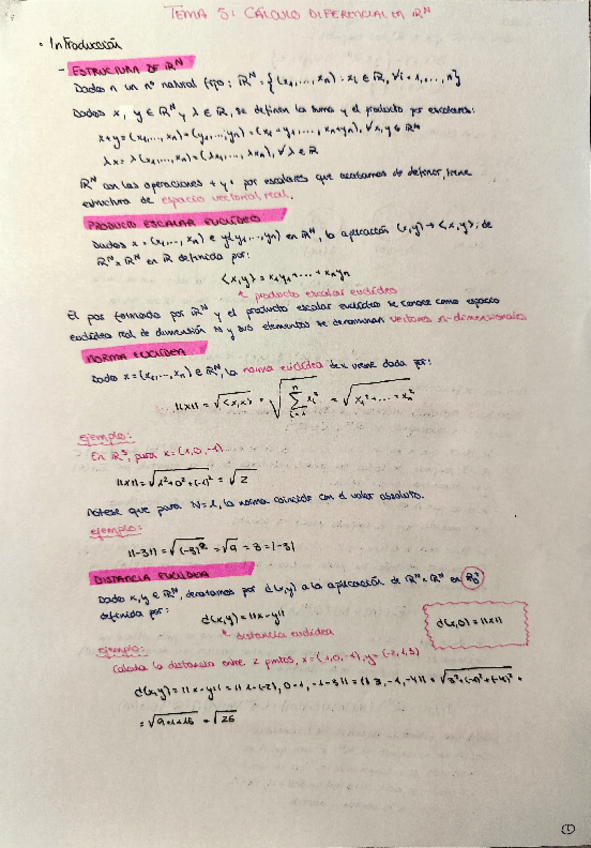 TEMA 5: CÁLCULO DIFERENCIAL EN ℝᴺ
• Introducción
- ESTRUCTURA DE ℝᴺ
Dados n un nº natural fijo: ℝᴺ = {(x₁, ..., xₙ) : xᵢ ∈ ℝ, ∀i = 1, ..., n}
Dados x, y ∈ ℝᴺ y λ ∈ ℝ, se definen la suma y el producto por escalares:
x+y = (x₁, ..., xₙ) + (y₁, ..., yₙ) = (x₁+y₁, ..., xₙ+yₙ), ∀x,y ∈ ℝᴺ
λx = λ(x₁, ..., xₙ) = (λx₁, ..., λxₙ), ∀λ ∈ ℝ
ℝᴺ con las operaciones + y · por escalares que acabamos de definir, tiene
estructura de espacio vectorial real.
PRODUCTO ESCALAR EUCLÍDEO
Dados x = (x₁, ..., xₙ) e y(y₁, ..., yₙ) en ℝᴺ, la aplicación (x,y) → <x,y>, de
ℝᴺ × ℝᴺ en ℝ definida por:
<x,y> = x₁y₁ + ... + xₙyₙ
↖ producto escalar euclídeo
El par formado por ℝᴺ y el producto escalar euclídeo se conoce como espacio
euclídeo real de dimensión N y sus elementos se denominan vectores n-dimensionales
NORMA EUCLÍDEA
Dado x = (x₁, ..., xₙ) ∈ ℝᴺ, la norma euclídea de x viene dada por:
||x|| = √<x,x> = √∑ᵢ₌₁ⁿ xᵢ² = √x₁² + ... + xₙ²
ejemplo:
En ℝ³, para x = (1,0,-1)
||x|| = √1² + 0² + (-1)² = √2
Nótese que para N=1, la norma coincide con el valor absoluto.
ejemplo:
||-3|| = √(-3)² = √9 = 3 = |-3|
DISTANCIA EUCLÍDEA
Dados x,y ∈ ℝᴺ, denotamos por d(x,y) a la aplicación de ℝᴺ × ℝᴺ en ℝ₀⁺
definida por:
d(x,y) = ||x-y||
↖ distancia euclídea
d(x,0) = ||x||
ejemplo:
Calcula la distancia entre 2 puntos, x = (1,0,-1), y = (-2,1,3)
d(x,y) = ||x-y|| = ||1-(-2), 0-1, -1-3|| = ||3, -1, -4|| = √3² + (-1)² + (-4)² =
= √9+1+16 = √26
①